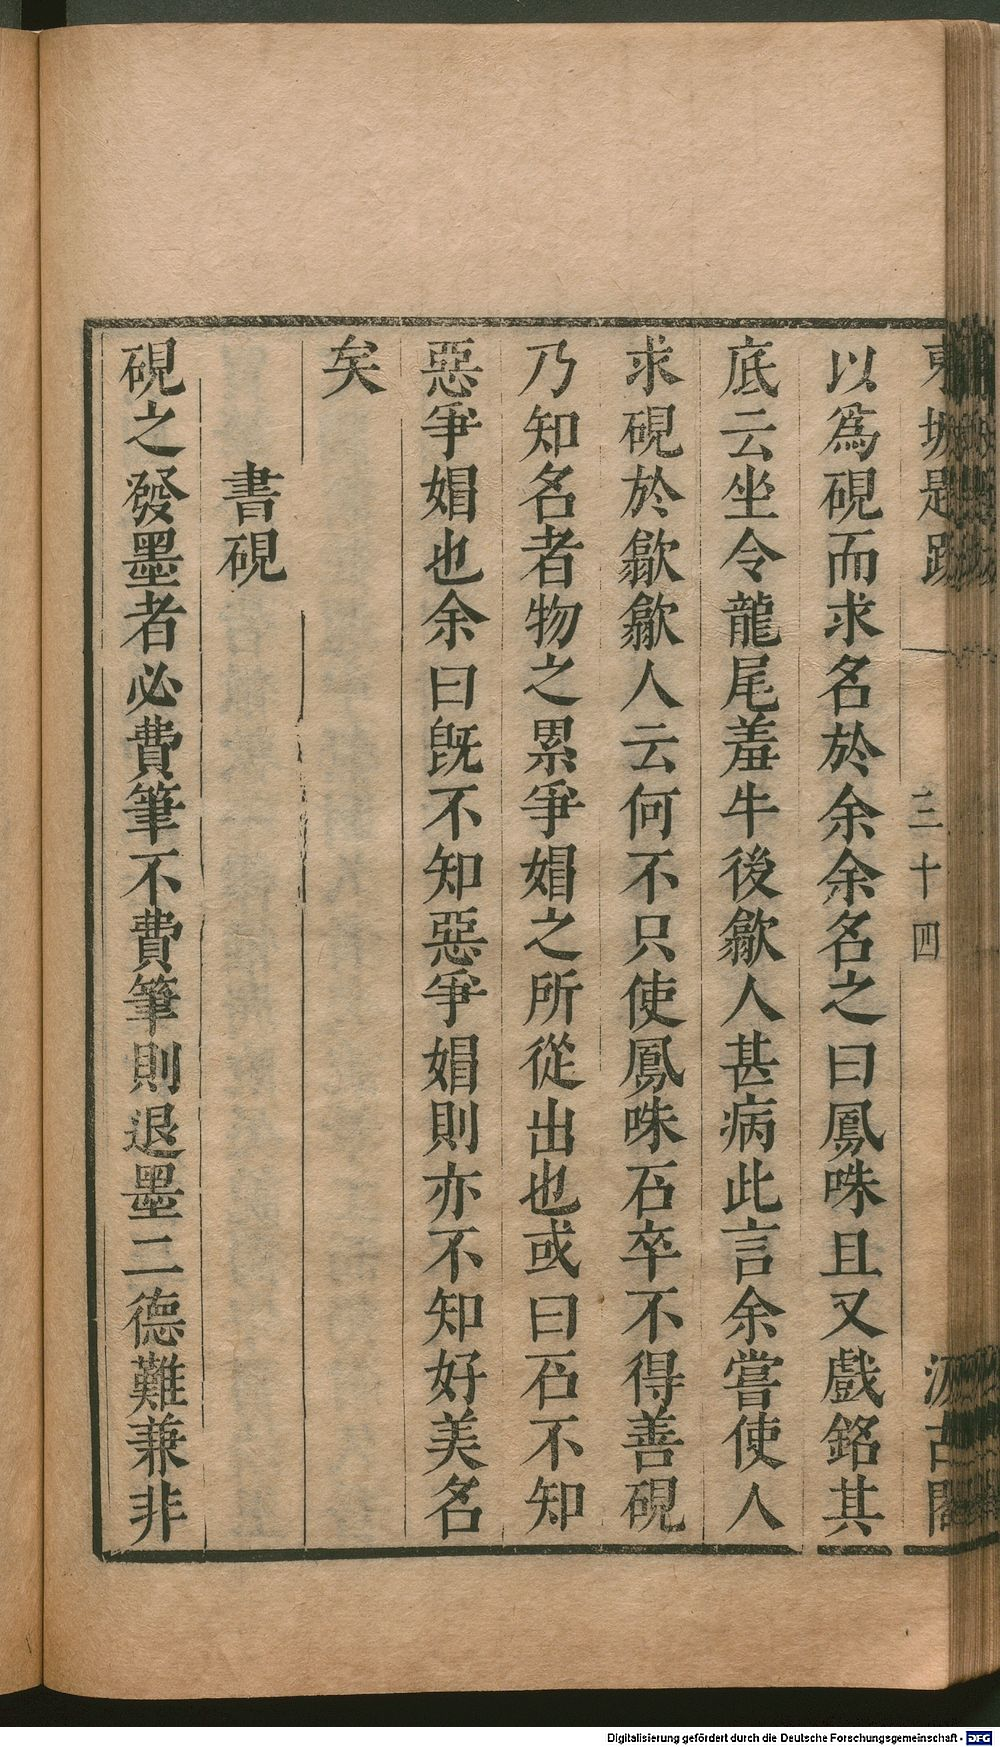 東坡題跋 三十四 汲古閣
以爲硯而求名於余余名之曰鳳咮且又戲銘其
底云坐令龍尾羞牛後歙人甚病此言余嘗使人
求硯於歙歙人云何不只使鳳咮石卒不得善硯
乃知名者物之累爭媢之所從出也或曰石不知
惡爭媢也余曰旣不知惡爭媢則亦不知好美名
矣
書硯
硯之發墨者必費筆不費筆則退墨二德難兼非
Digitalisierung gefördert durch die Deutsche Forschungsgemeinschaft - DFG